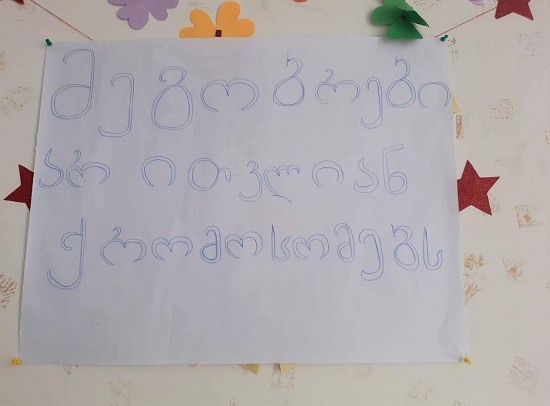 მეგობრები
არ ითვლიან
ქრომოსომებს